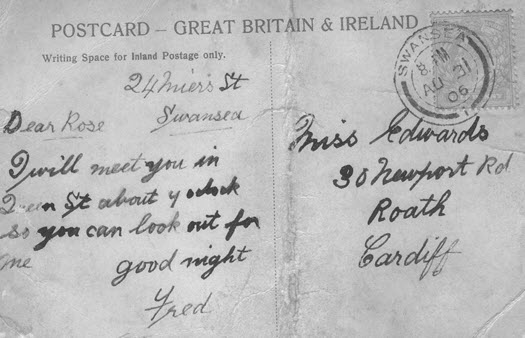 POSTCARD – GREAT BRITAIN & IRELAND
Writing Space for Inland Postage only.
SWANSEA
8 PM
AU 21
06
24 Miers St
Swansea
Dear Rose
I will meet you in
Queen St about 4 oclock
so you can look out for
me good night
Fred
Miss Edwards
30 Newport Rd
Roath
Cardiff